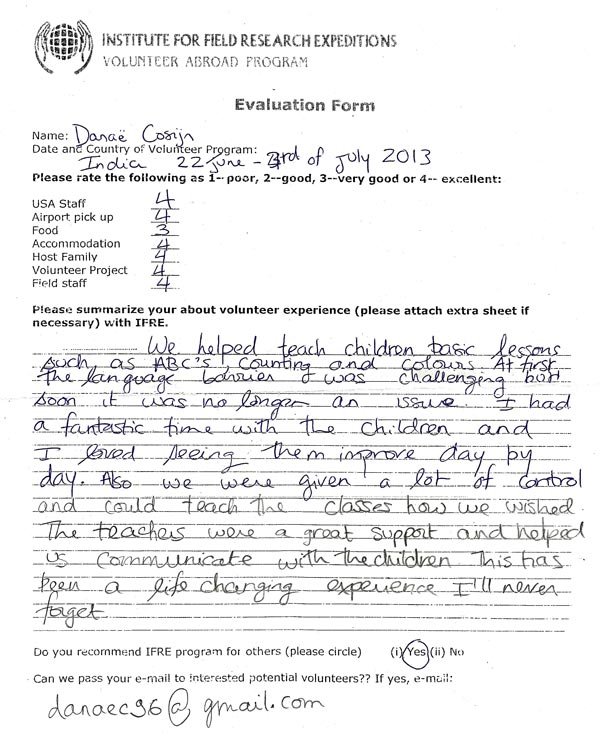 INSTITUTE FOR FIELD RESEARCH EXPEDITIONS
VOLUNTEER ABROAD PROGRAM
Evaluation Form
Name: Danaë Cosijn
Date and Country of Volunteer Program:
India 22 June - 3rd of July 2013
Please rate the following as 1-- poor, 2--good, 3--very good or 4-- excellent:
USA Staff 4
Airport pick up 4
Food 3
Accommodation 4
Host Family 4
Volunteer Project 4
Field staff 4
Please summarize your about volunteer experience (please attach extra sheet if
necessary) with IFRE.
We helped teach children basic lessons
such as ABC's, counting and colours. At first
the language barrier was challenging but
soon it was no longer an issue. I had
a fantastic time with the children and
I loved seeing them improve day by
day. Also we were given a lot of control
and could teach the classes how we wished.
The teachers were a great support and helped
us communicate with the children This has
been a life changing experience I'll never
forget
Do you recommend IFRE program for others (please circle) (i) Yes (ii) No
Can we pass your e-mail to interested potential volunteers?? If yes, e-mail:
danaec96@gmail.com